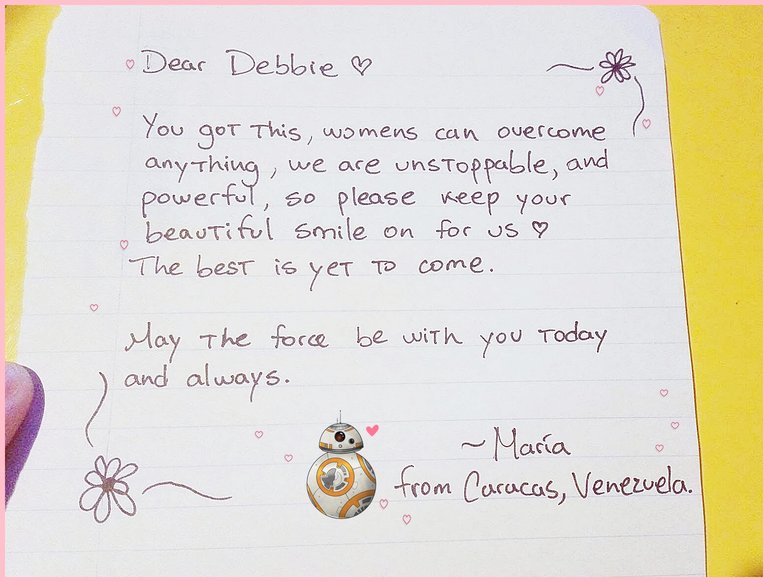 Dear Debbie ♡
You got this, womens can overcome
anything, we are unstoppable, and
powerful, so please keep your
beautiful smile on for us ♡
The best is yet to come.
May the force be with you today
and always.
~ María
from Caracas, Venezuela.